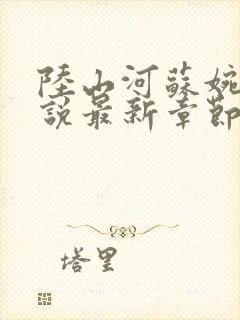 陸山河蘇婉
說最新章節
塔里